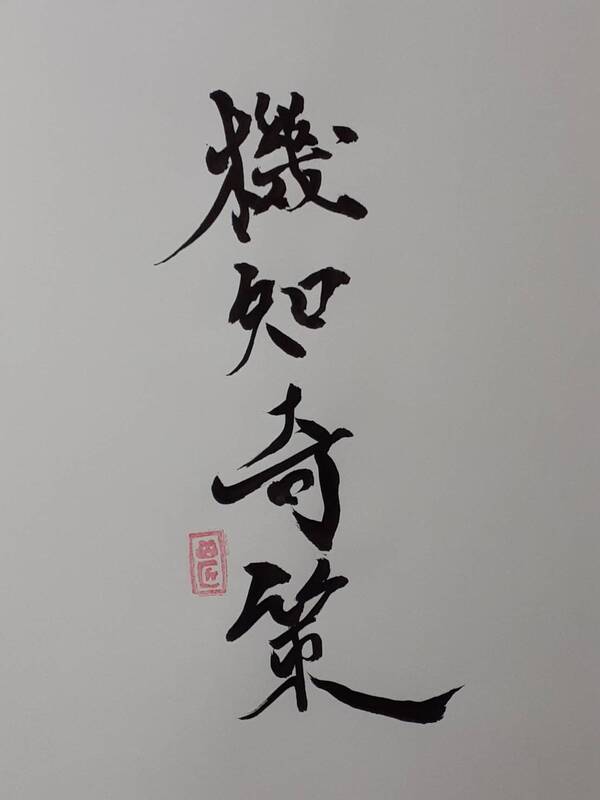 機知奇策